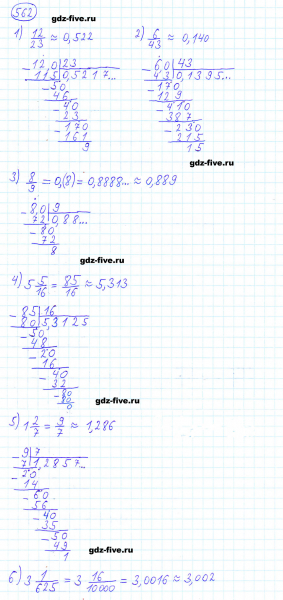 562
gdz-five.ru
1) 12/23 ≈ 0,522
2) 6/43 ≈ 0,140
-12,0 | 23
115 | 0,5217...
-50
46
-40
23
-170
161
9
-60 | 43
43 | 0,1395...
-170
129
-410
387
-230
215
15
gdz-five.ru
3) 8/9 = 0,(8) = 0,8888... ≈ 0,889
-8,0 | 9
72 | 0,88...
-80
72
8
gdz-five.ru
4) 5 5/16 = 85/16 ≈ 5,313
-85 | 16
80 | 5,3125
-50
48
-20
16
-40
32
-80
80
0
gdz-five.ru
5) 1 2/7 = 9/7 ≈ 1,286
-9 | 7
7 | 1,2857...
-20
14
-60
56
-40
35
-50
49
1
gdz-five.ru
6) 3 1/625 = 3 16/10000 = 3,0016 ≈ 3,002